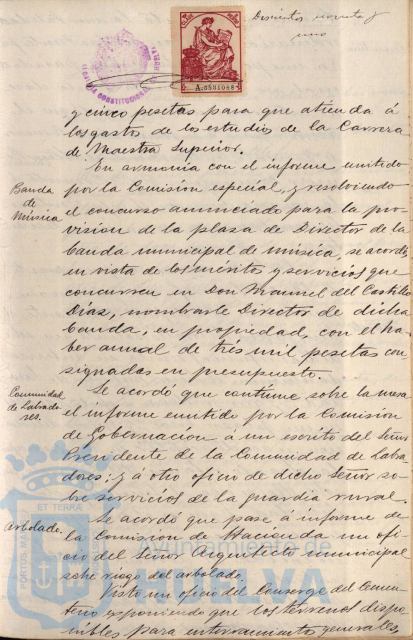 Doscientos noventa y
uno
ALCALDIA CONSTITUCIONAL
HUELVA
A.5531088
y cinco pesetas para que atienda á
los gastos de los estudios de la Carrera
de Maestra Superior.
En armonía con el informe emitido
Banda
de
Música
por la Comision especial, y resolviendo
el concurso anunciado para la pro-
vision de la plaza de Director de la
banda municipal de música, se acordó,
en vista de los méritos y servicios que
concurren en Don Manuel del Castillo
Díaz, nombrarle Director de dicha
banda, en propiedad, con el ha-
ber anual de tres mil pesetas con
signadas en presupuesto.
Comunidad
de Labrado
res.
Se acordó que continúe sobre la mesa
el informe emitido por la Comision
de Gobernacion á un escrito del Señor
Presidente de la Comunidad de Labra-
dores; y á otro oficio de dicho Señor so-
bre servicios de la guardia rural.
Arbolado.
Se acordó que pase á informe de
la Comision de Hacienda un ofi-
cio del Señor Arquitecto municipal
sobre riego del arbolado.
Visto un oficio del Conserge del Cemen-
terio exponiendo que los terrenos dispo-
nibles para enterramientos generales,
PORTUS MARIS ET TERRÆ
Ayuntamiento de
HUELVA